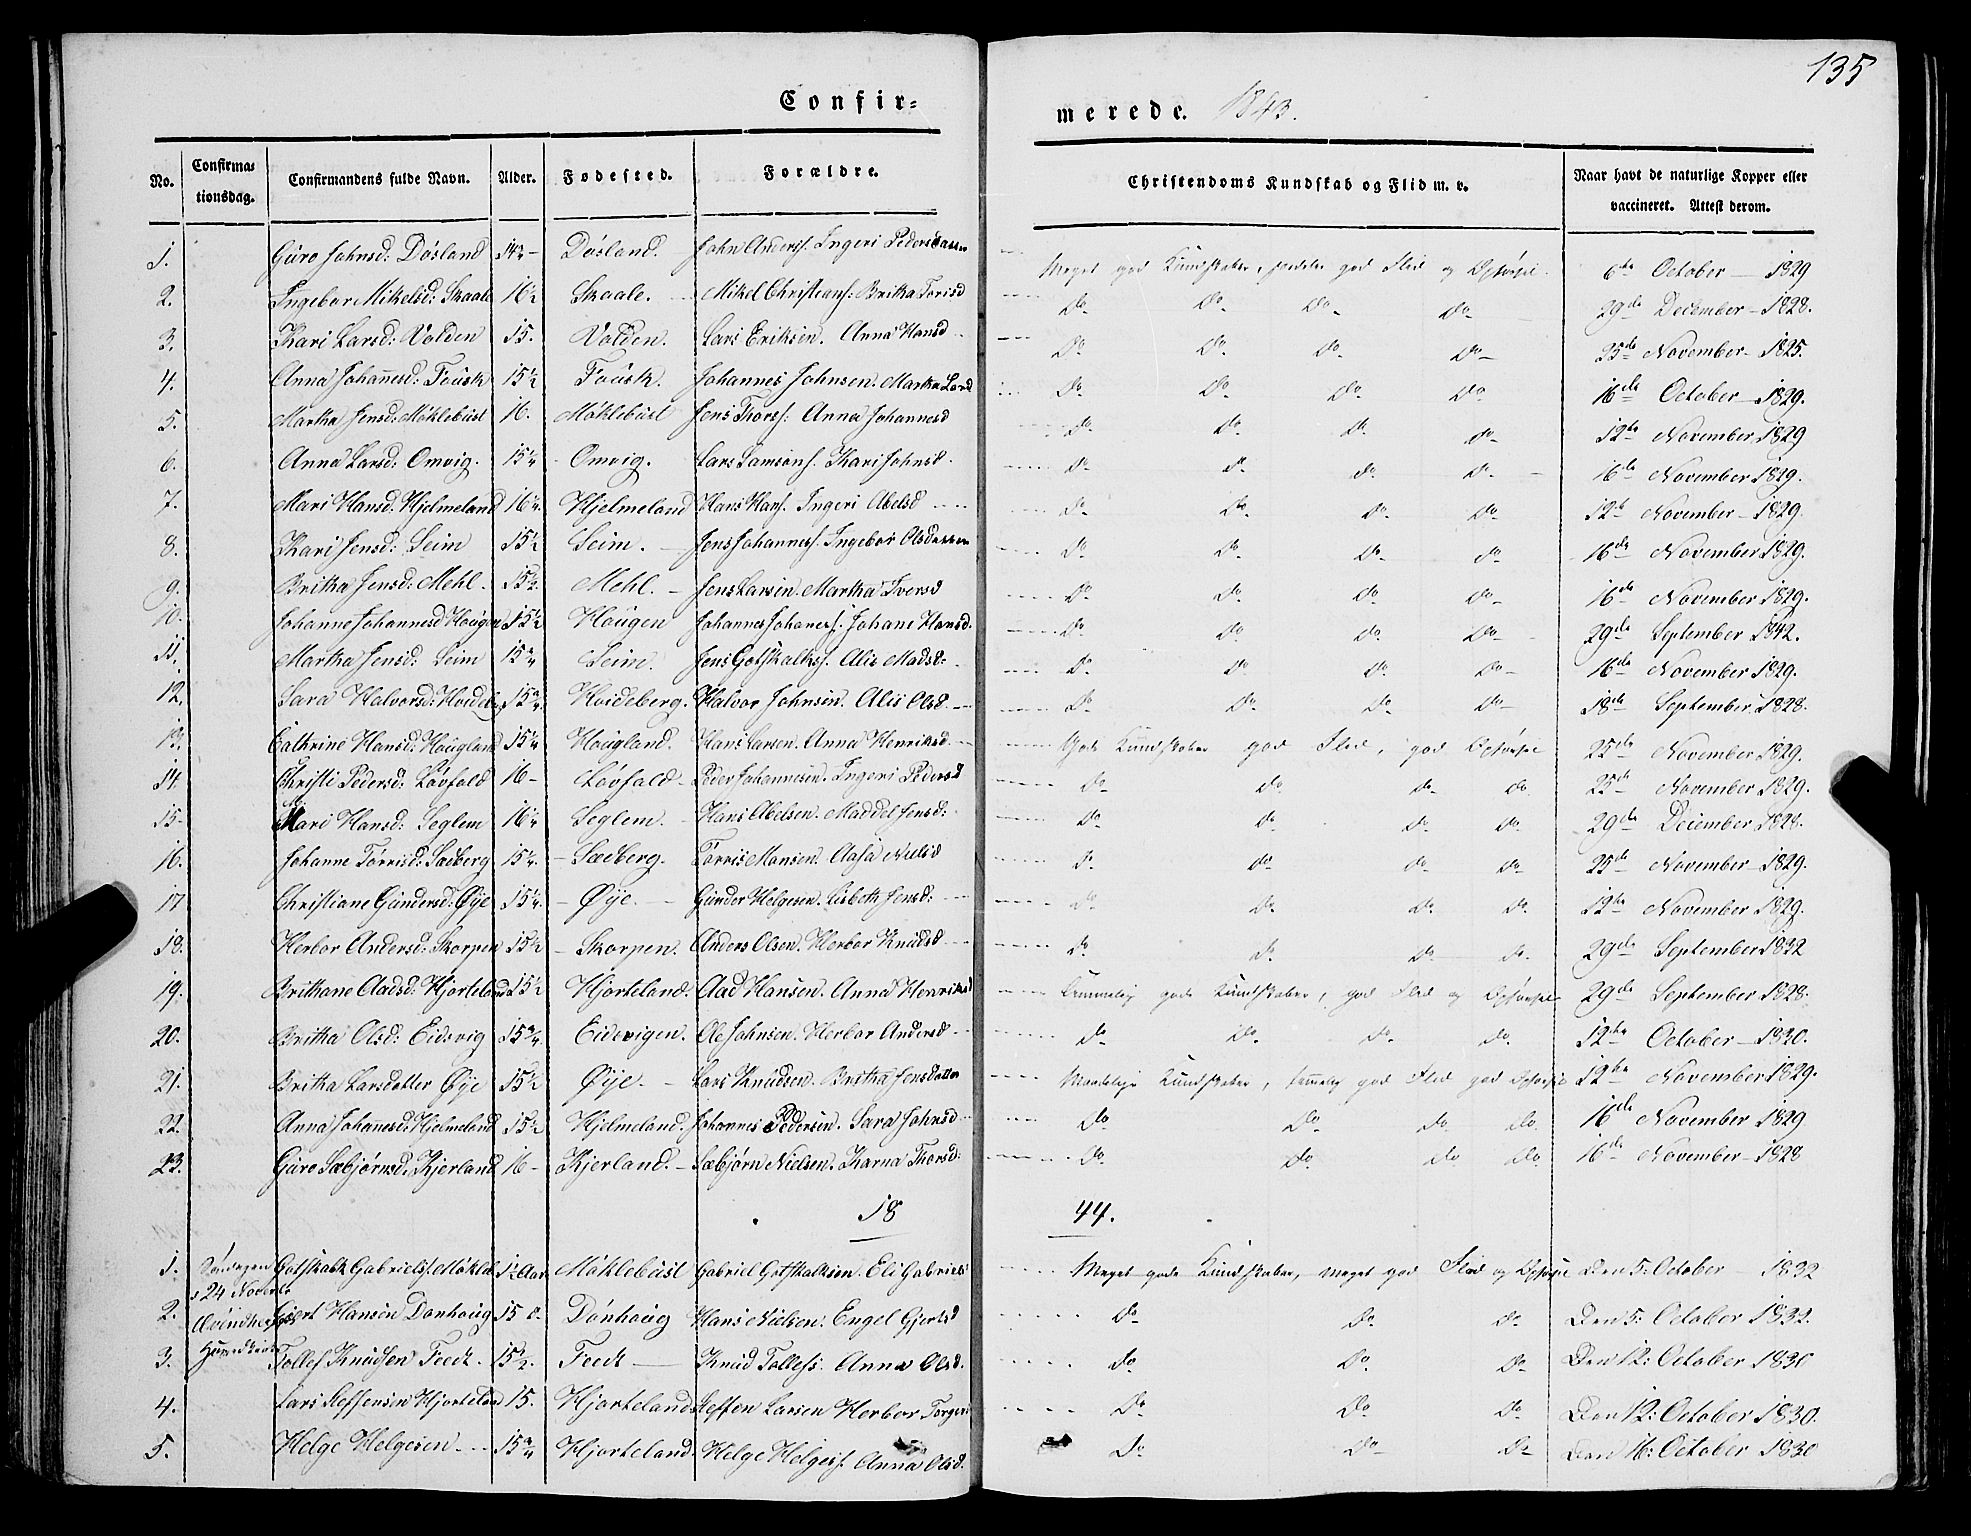 135
Confir=
merede. 1843.
No. Confirma=tionsdag. Confirmandens fulde Navn. Alder. Fødested. Forældre. Christendoms Kundskab og Flid m. v. Naar havt de naturlige Kopper eller vaccineret. Attest derom.
1. Guro Johnsd: Døsland Døsland. John Anders. Ingeri Meget god Kundskaber, god Flid og Opførsel. 6te October 1829
2. Ingebor Mikelsd: Skaale 16½ Skaale. Mikel Christians: Britha Torisd Do Do Do Do 29de December 1828.
3. Kari Larsd: Volden 15. Volden. Lars Eriksen. Anna Hansd Do Do Do Do 25de November 1825.
4. Anna Johanesd: Fousk 15½ Fousk. Johannes Johnsen. Martha Do Do Do Do 16de October 1829.
5. Martha Jensd: Møklebust 16. Møklebust Jens Thors: Anna Johannesd Do Do Do Do 12te November 1829
6. Anna Larsd: Omvig. 15¼ Omvig. Lars Samsons. Kari Johnsd. Do Do Do Do 16de November 1829.
7. Mari Hansd: Hjelmeland 16¼ Hjelmeland Hans Hans. Ingeri Abelsd Do Do Do Do 12te November 1829.
8. Kari Jensd: Seim 15½ Seim. Jens Johannes. Ingebor Do Do Do Do 16de November 1829.
9. Britha Jensd: Mehl. 15½ Mehl. Jens Larsen. Martha Iversd Do Do Do Do 16de November 1829.
10. Johanne Johannesd Hougen 15½ Hougen Johannes Johanes. Johane Hansd. Do Do Do Do 29de September 1842.
11. Martha Jensd: Seim 15¾ Seim. Jens Gotskalks. Alis Madsd: Do Do Do Do 16de November 1829.
12. Sara Halvorsd: 15¾ Hvideberg. Halvor Johnsen. Alis Olsd. Do Do Do Do 18de September 1828.
13. Cathrine Hansd: Hougland 15¼ Hougland. Hans Larsen. Anna Henriksd. Gode Kundskaber god Flid, god Opførsel 25de November 1829.
14. Christi Pedersd: Løvfald 16 Løvfald Peder Johannesen. Ingeri Pedersd Do Do Do Do 25de November 1829.
15. Mari Hansd: Seglem 16¼ Seglem. Hans Abelsen. Maddel Jensd: Do Do Do Do 29de December 1828.
16. Johanne Tørrisd: Sæberg 15¼. Sæberg. Tørris Monsen. Aasa Nielsd Do Do Do Do 25de November 1829.
17 Christiane Gundersd: Øye 15¼. Øye. Gunder Helgesen. Lisbeth Jensd: Do Do Do Do 12te November 1829.
18. Herbor Andersd: Skorpen 15½ Skorpen. Anders Olsen. Herbor Knudsd Do Do Do Do 29de September 1832
19. Brithane Aadsd: Hjorteland 15½ Hjorteland. Aad Hansen. Anna Henriksd Temmelig gode Kundskaber, god Flid og Opførsel 29de September 1828.
20. Britha Olsd: Eidsvig 15¾. Eidsvigen. Ole Johnsen. Herbor Andersd Do Do Do Do 12te October 1830.
21. Britha Larsdatter Øye 15½ Øye. Lars Knudsen. Britha Jensdatter Maadelige Kundskaber, temmelig god Flid god Opførsel 12te November 1829.
22. Anna Johanesd: Hjelmeland 15½ Hjelmeland. Johannes Pedersen. Sara Johnsd Do Do Do Do 16de November 1829
23. Guro Sæbjørnsd. Kjerland 16 Kjerland. Sæbjørn Nielsen. Karna Thorsd: Do Do Do Do 16de November 1828
18 44.
1. Søndagen Gotskalk Gabriels. Møkleb Møklebust Gabriel Gotskalksen. Eli Gabriels Meget gode Kundskaber, meget god Flid og Opførsel Den 5: October 1832
24 Novemb
2. Gjert Hansen Dønhoug 15 Dønhoug Hans Nielsen. Engel Gjertsd Do Do Do Den 5: October 1832.
Qvindher
3. Tollef Knudsen Feedt. Feedt Knud Tollefs. Anna Olsd. Do Do Do Den 12: October 1830
4. Lars Steffensen Hjorteland 15. Hjorteland Steffen Larsen Herbor Torgeri Do Do Do Den 12: October 1830.
5. Helge Helgesen 15¾ Hjorteland. Helge Helges. Anna Olsd. Do Do Do Den 16: October 1830